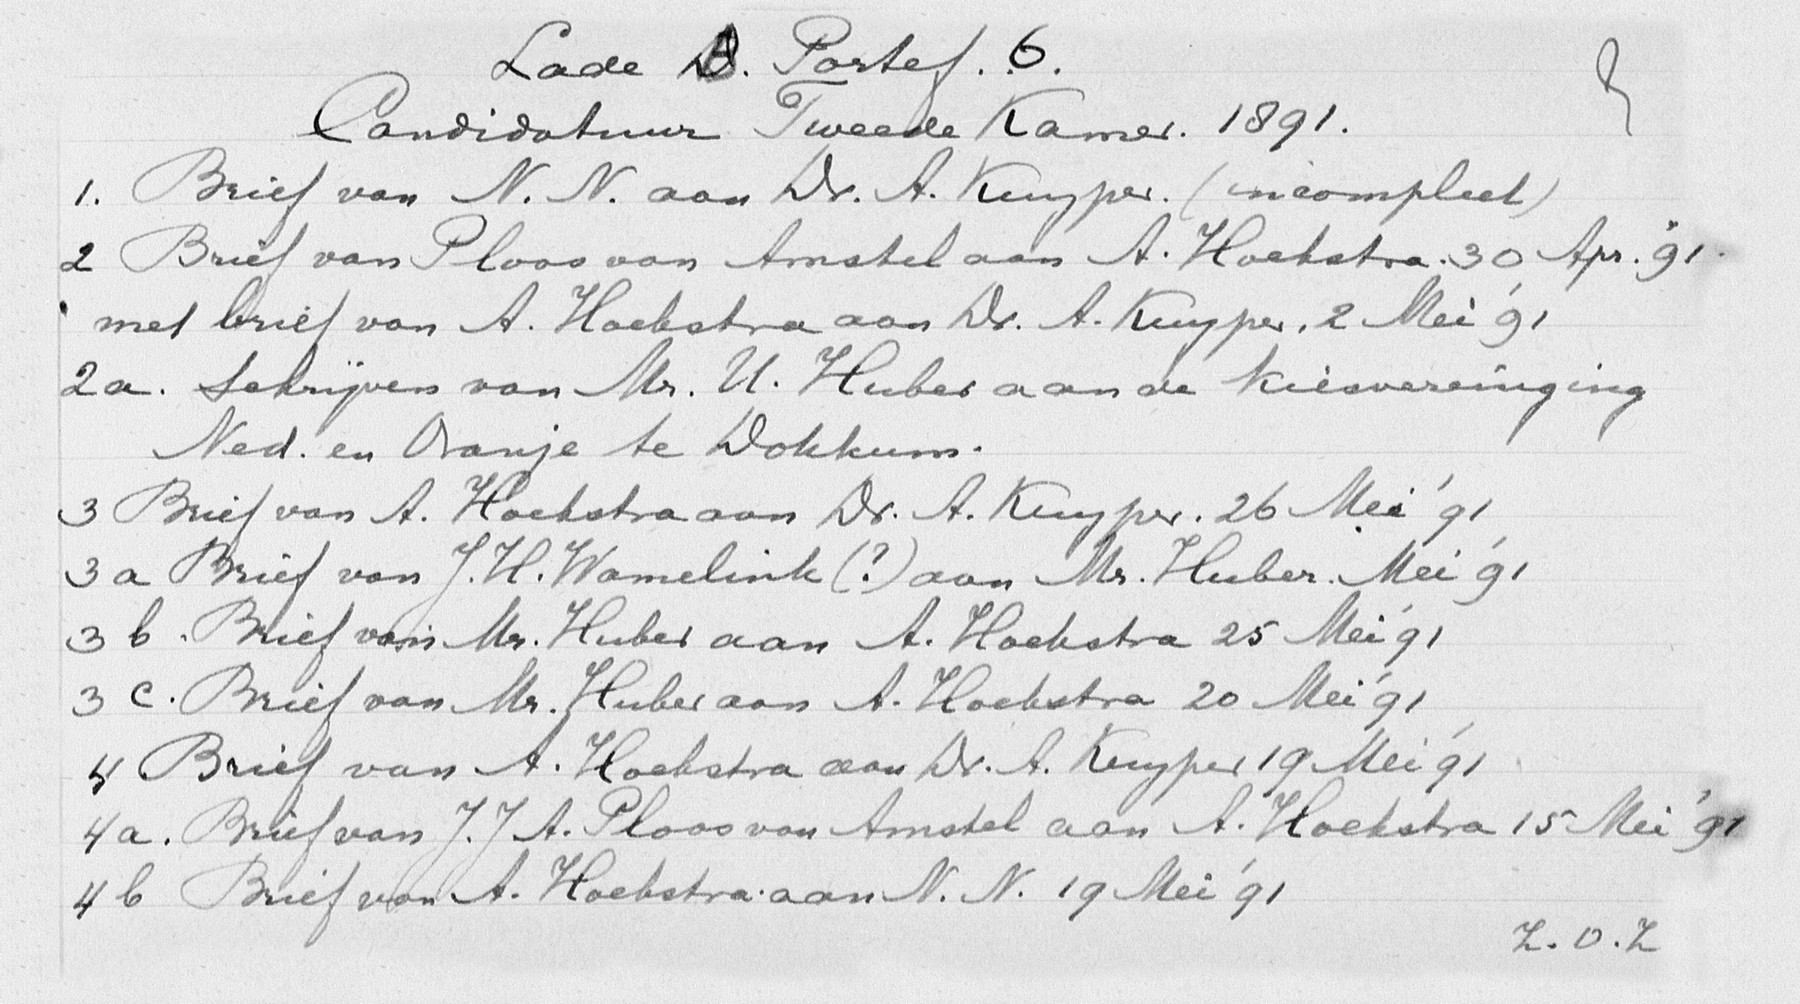 Lade B. Portef. 6.
Candidatuur Tweede Kamer. 1891.
1. Brief van N. N. aan Dr. A. Kuyper. (incompleet)
2 Brief van Ploos van Amstel aan A. Hoekstra. 30 Apr. '91.
met brief van A. Hoekstra aan Dr. A. Kuyper, 2 Mei '91
2a. Schrijven van Mr. U. Huber aan de Kiesvereeniging
Ned. en Oranje te Dokkum.
3 Brief van A. Hoekstra aan Dr. A. Kuyper. 26 Mei '91
3a Brief van J. H. Wamelink (?) aan Mr. Huber. Mei '91
3b. Brief van Mr. Huber aan A. Hoekstra 25 Mei '91
3c. Brief van Mr. Huber aan A. Hoekstra 20 Mei '91
4 Brief van A. Hoekstra aan Dr. A. Kuyper 19 Mei '91
4a. Brief van J. J A. Ploos van Amstel aan A. Hoekstra 15 Mei '91
4b Brief van A. Hoekstra aan N. N. 19 Mei '91
Z.O.Z